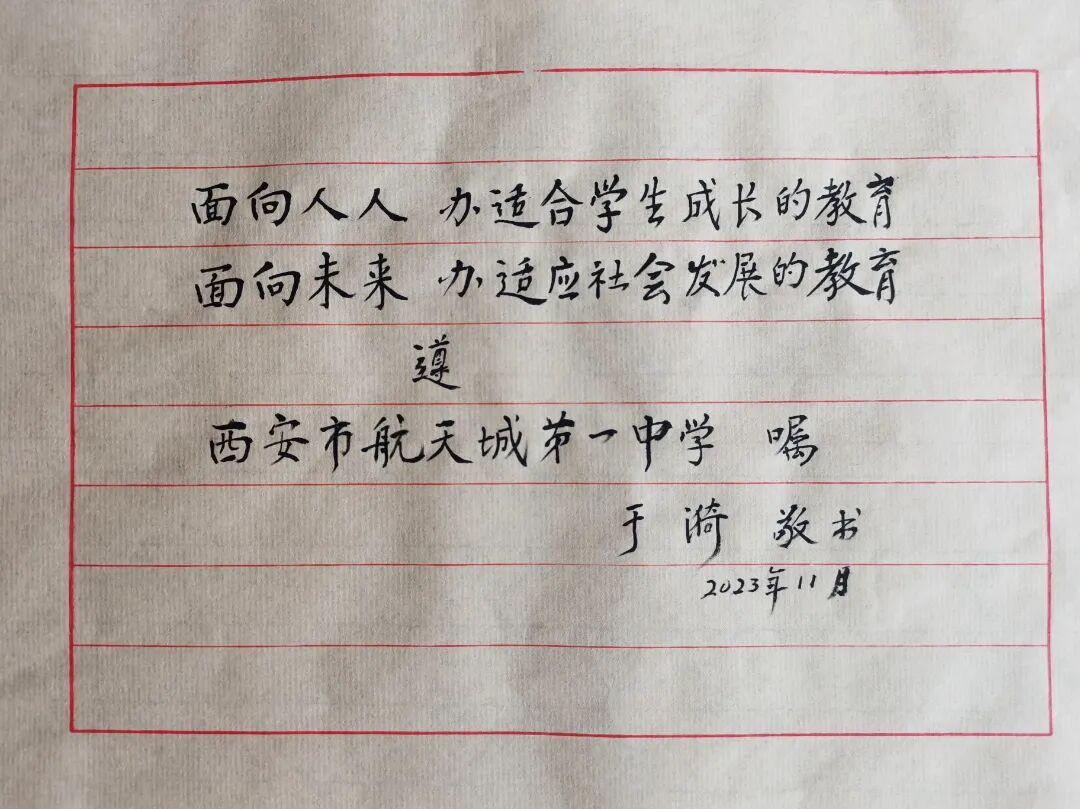 面向人人 办适合学生成长的教育
面向未来 办适应社会发展的教育
遵
西安市航天城第一中学 嘱
于漪 敬书
2023年11月